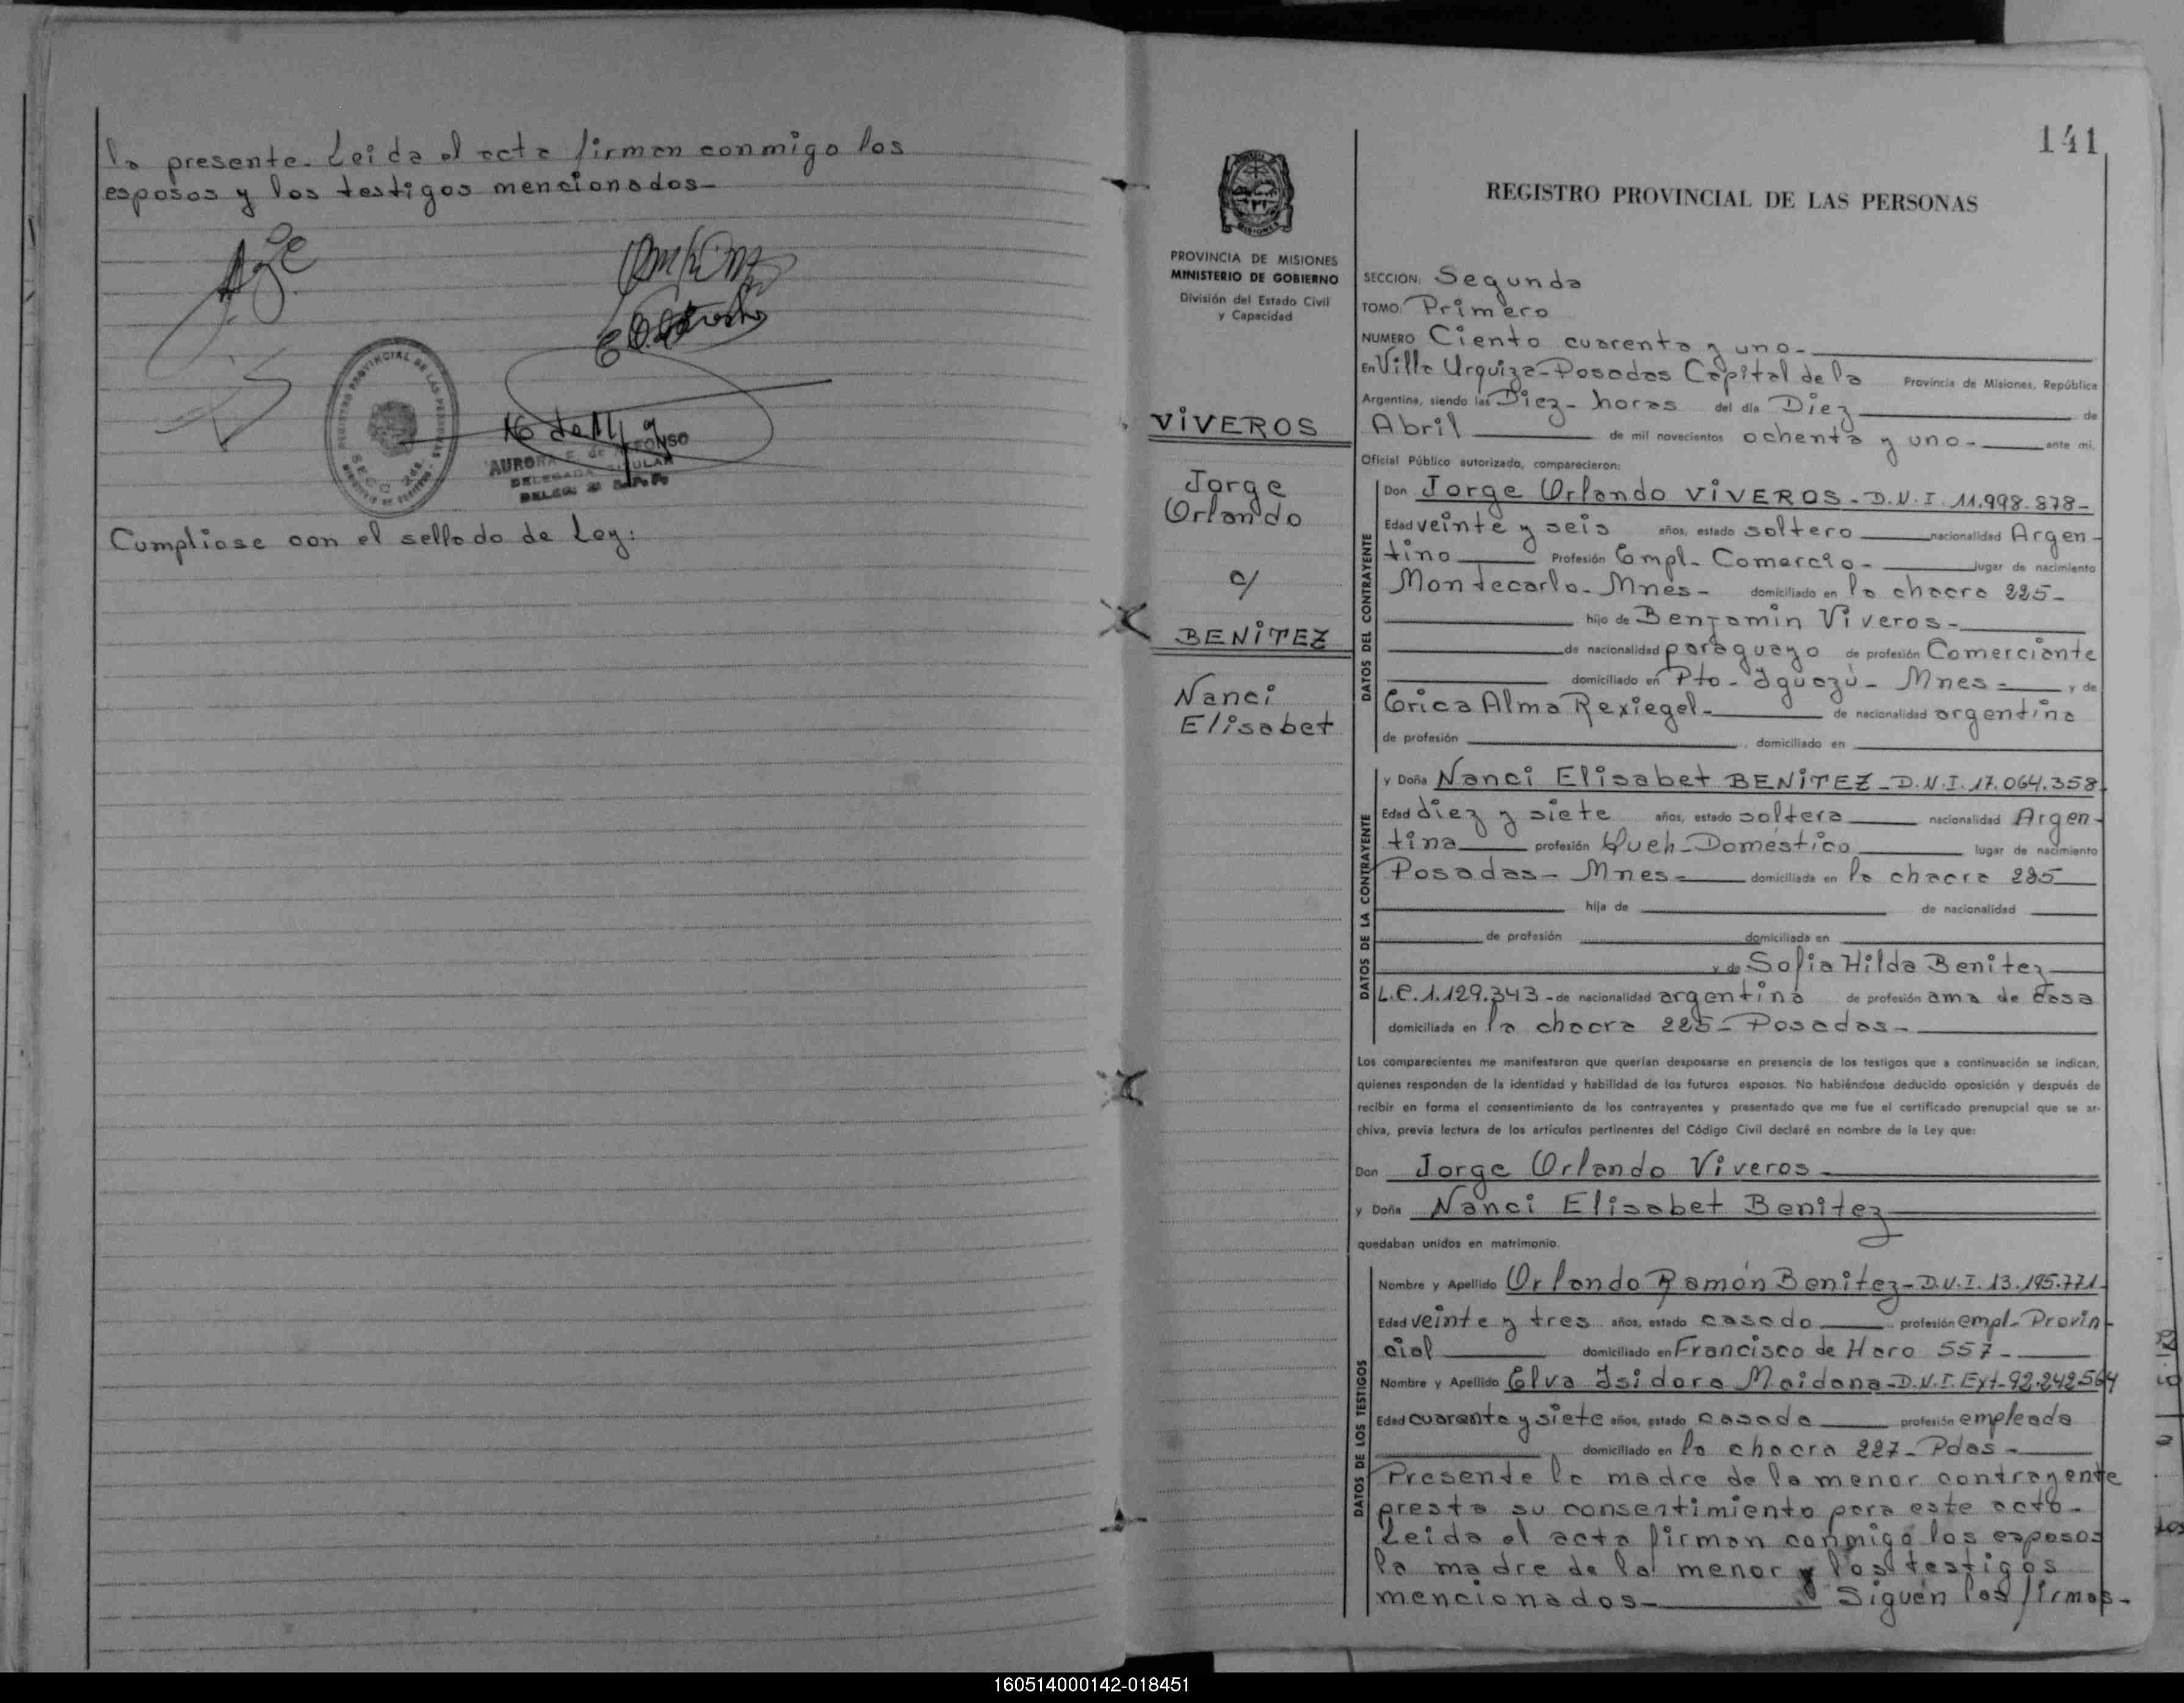 la presente. Leida el acta firman conmigo los
esposos y los testigos mencionados-
REGISTRO PROVINCIAL DE LAS PERSONAS
SECC. 2da.
AURORA E. de ALFONSO
DELEGADA TITULAR
DELEG. 2a R.P.P.
Cumpliose con el sellado de Ley:
141
REGISTRO PROVINCIAL DE LAS PERSONAS
MISIONES
PROVINCIA DE MISIONES
MINISTERIO DE GOBIERNO
División del Estado Civil
y Capacidad
VIVEROS
Jorge
Orlando
c/
BENITEZ
Nanci
Elisabet
SECCION: Segunda
TOMO: Primero
NUMERO Ciento cuarenta y uno-
En Villa Urquiza-Posadas Capital de la Provincia de Misiones, República
Argentina, siendo las Diez- horas del día Diez de
Abril de mil novecientos ochenta y uno- ante mi,
Oficial Público autorizado, comparecieron:
DATOS DEL CONTRAYENTE
Don Jorge Orlando VIVEROS- D.N.I. 11.998.878-
Edad veinte y seis años, estado soltero nacionalidad Argen-
tino Profesión Empl- Comercio- lugar de nacimiento
Montecarlo- Mnes- domiciliado en la chacra 225-
hijo de Benjamin Viveros-
de nacionalidad paraguayo de profesión Comerciante
domiciliado en Pto- Iguazú- Mnes= y de
Erica Alma Rexiegel- de nacionalidad argentina
de profesión domiciliado en
DATOS DE LA CONTRAYENTE
y Doña Nanci Elisabet BENITEZ-D.N.I.17.064.358
Edad diez y siete años, estado soltera nacionalidad Argen-
tina profesión Queh-Doméstico lugar de nacimiento
Posadas- Mnes= domiciliada en la chacra 225
hija de de nacionalidad
de profesión domiciliada en
y de Sofia Hilda Benitez
L.C.1.129.343-de nacionalidad argentina de profesión ama de casa
domiciliada en la chacra 225- Posadas-
Los comparecientes me manifestaron que querían desposarse en presencia de los testigos que a continuación se indican,
quienes responden de la identidad y habilidad de los futuros esposos. No habiéndose deducido oposición y después de
recibir en forma el consentimiento de los contrayentes y presentado que me fue el certificado prenupcial que se ar-
chiva, previa lectura de los artículos pertinentes del Código Civil declaré en nombre de la Ley que:
Don Jorge Orlando Viveros-
y Doña Nanci Elisabet Benitez
quedaban unidos en matrimonio.
DATOS DE LOS TESTIGOS
Nombre y Apellido Orlando Ramón Benitez-D.N.I.13.195.771-
Edad veinte y tres años, estado casado profesión empl- Provin-
cial domiciliado en Francisco de Haro 557-
Nombre y Apellido Elva Isidora Maidana-D.N.I.Ext-92.242.564
Edad cuarenta y siete años, estado casada profesión empleada
domiciliado en la chacra 227- Pdas-
Presente la madre de la menor contrayente
presta su consentimiento para este acto-
Leida el acta firman conmigo los esposos
la madre de la menor y los testigos
mencionados- Siguen las firmas-
160514000142-018451